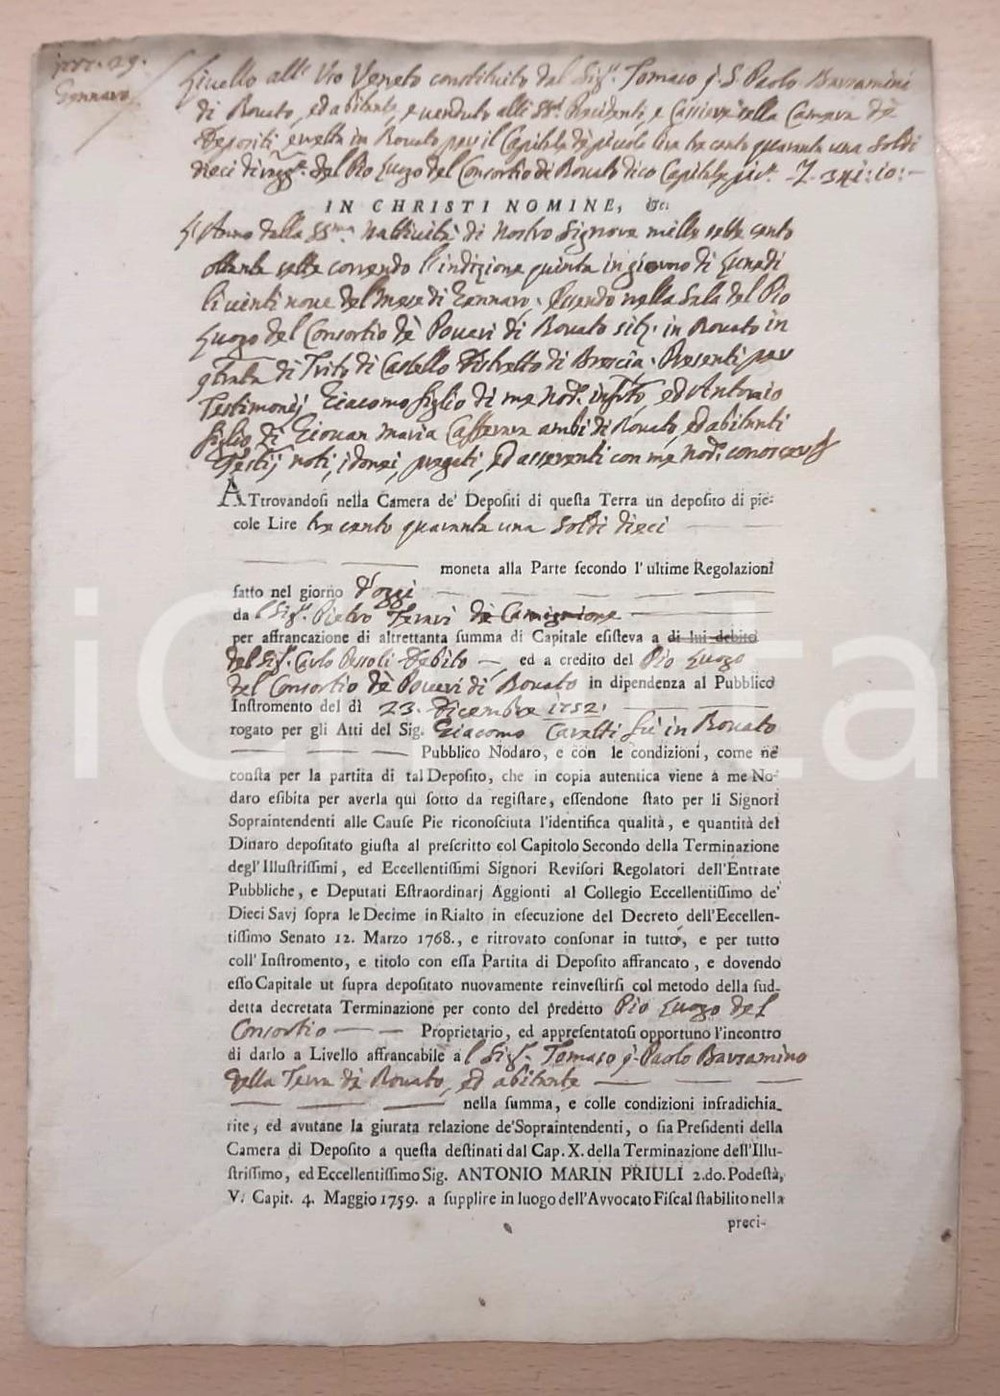 Gennaro
Livello all'Uso Veneto constituito dal Sigr. Tomaso q. S. Paolo Barzamini
di Rovato, ed abitante, e venduto alli SSri. Presidenti, e Cassiere della Camera de
Depositi eretta in Rovato per il Capitale de piccole lire tre cento quaranta una Soldi
dieci di del Pio Luogo del Consortio di Rovato dico Capitale L 341:10:
IN CHRISTI NOMINE, &c.
L'Anno della SSma. nattività di Nostro Signore mille sette cento
ottanta sette correndo l'indizione quinta in giorno di Lunedi
li vinti nove del Mese di Gennaro. Essendo nella Sala del Pio
Luogo del Consortio de Poveri di Rovato in Rovato in
di Castello Distretto di Brescia. Presenti per
Testimonij Giacomo figlio di me Nodo. infrto. ed Antonio
figlio di Giovan Maria ambi di Rovato, ed abitanti
Testij noti, idonei, pregati, ed asserenti con me Nodo. conoscer
ATtrovandosi nella Camera de' Depositi di questa Terra un deposito di pic-
cole Lire tre cento quaranta una Soldi dieci
moneta alla Parte secondo l'ultime Regolazioni
fatto nel giorno d'oggi
da l Sigr. Pietro
per affrancazione di altrettanta summa di Capitale esisteva a di lui debito
del Sigr. Carlo Pessoli Debito — ed a credito del Pio Luogo
del Consortio de Poveri di Rovato in dipendenza al Pubblico
Instromento del dì 23. Dicembre 1752.
rogato per gli Atti del Sig. Giacomo Cavalli fù in Rovato
Pubblico Nodaro, e con le condizioni, come ne
consta per la partita di tal Deposito, che in copia autentica viene à me No-
daro esibita per averla qui sotto da registare, essendone stato per li Signori
Sopraintendenti alle Cause Pie riconosciuta l'identifica qualità, e quantità del
Dinaro depositato giusta al prescritto col Capitolo Secondo della Terminazione
degl'Illustrissimi, ed Eccellentissimi Signori Revisori Regolatori dell'Entrate
Pubbliche, e Deputati Estraordinarj Aggionti al Collegio Eccellentissimo de'
Dieci Savj sopra le Decime in Rialto in esecuzione del Decreto dell'Eccellen-
tissimo Senato 12. Marzo 1768., e ritrovato consonar in tutto, e per tutto
coll'Instromento, e titolo con essa Partita di Deposito affrancato, e dovendo
esso Capitale ut supra depositato nuovamente reinvestirsi col metodo della sud-
detta decretata Terminazione per conto del predetto Pio Luogo del
Consortio — — Proprietario, ed appresentatosi opportuno l'incontro
di darlo a Livello affrancabile a l Sigr. Tomaso q. Paolo Barzamino
della Terra di Rovato, ed abitante
nella summa, e colle condizioni infradichia-
rite, ed avutane la giurata relazione de'Sopraintendenti, o sia Presidenti della
Camera di Deposito a questa destinati dal Cap. X. della Terminazione dell'Illu-
strissimo, ed Eccellentissimo Sig. ANTONIO MARIN PRIULI 2.do. Podestà,
V. Capit. 4. Maggio 1759. a supplire in luogo dell'Avvocato Fiscal stabilito nella
preci-
iCharta